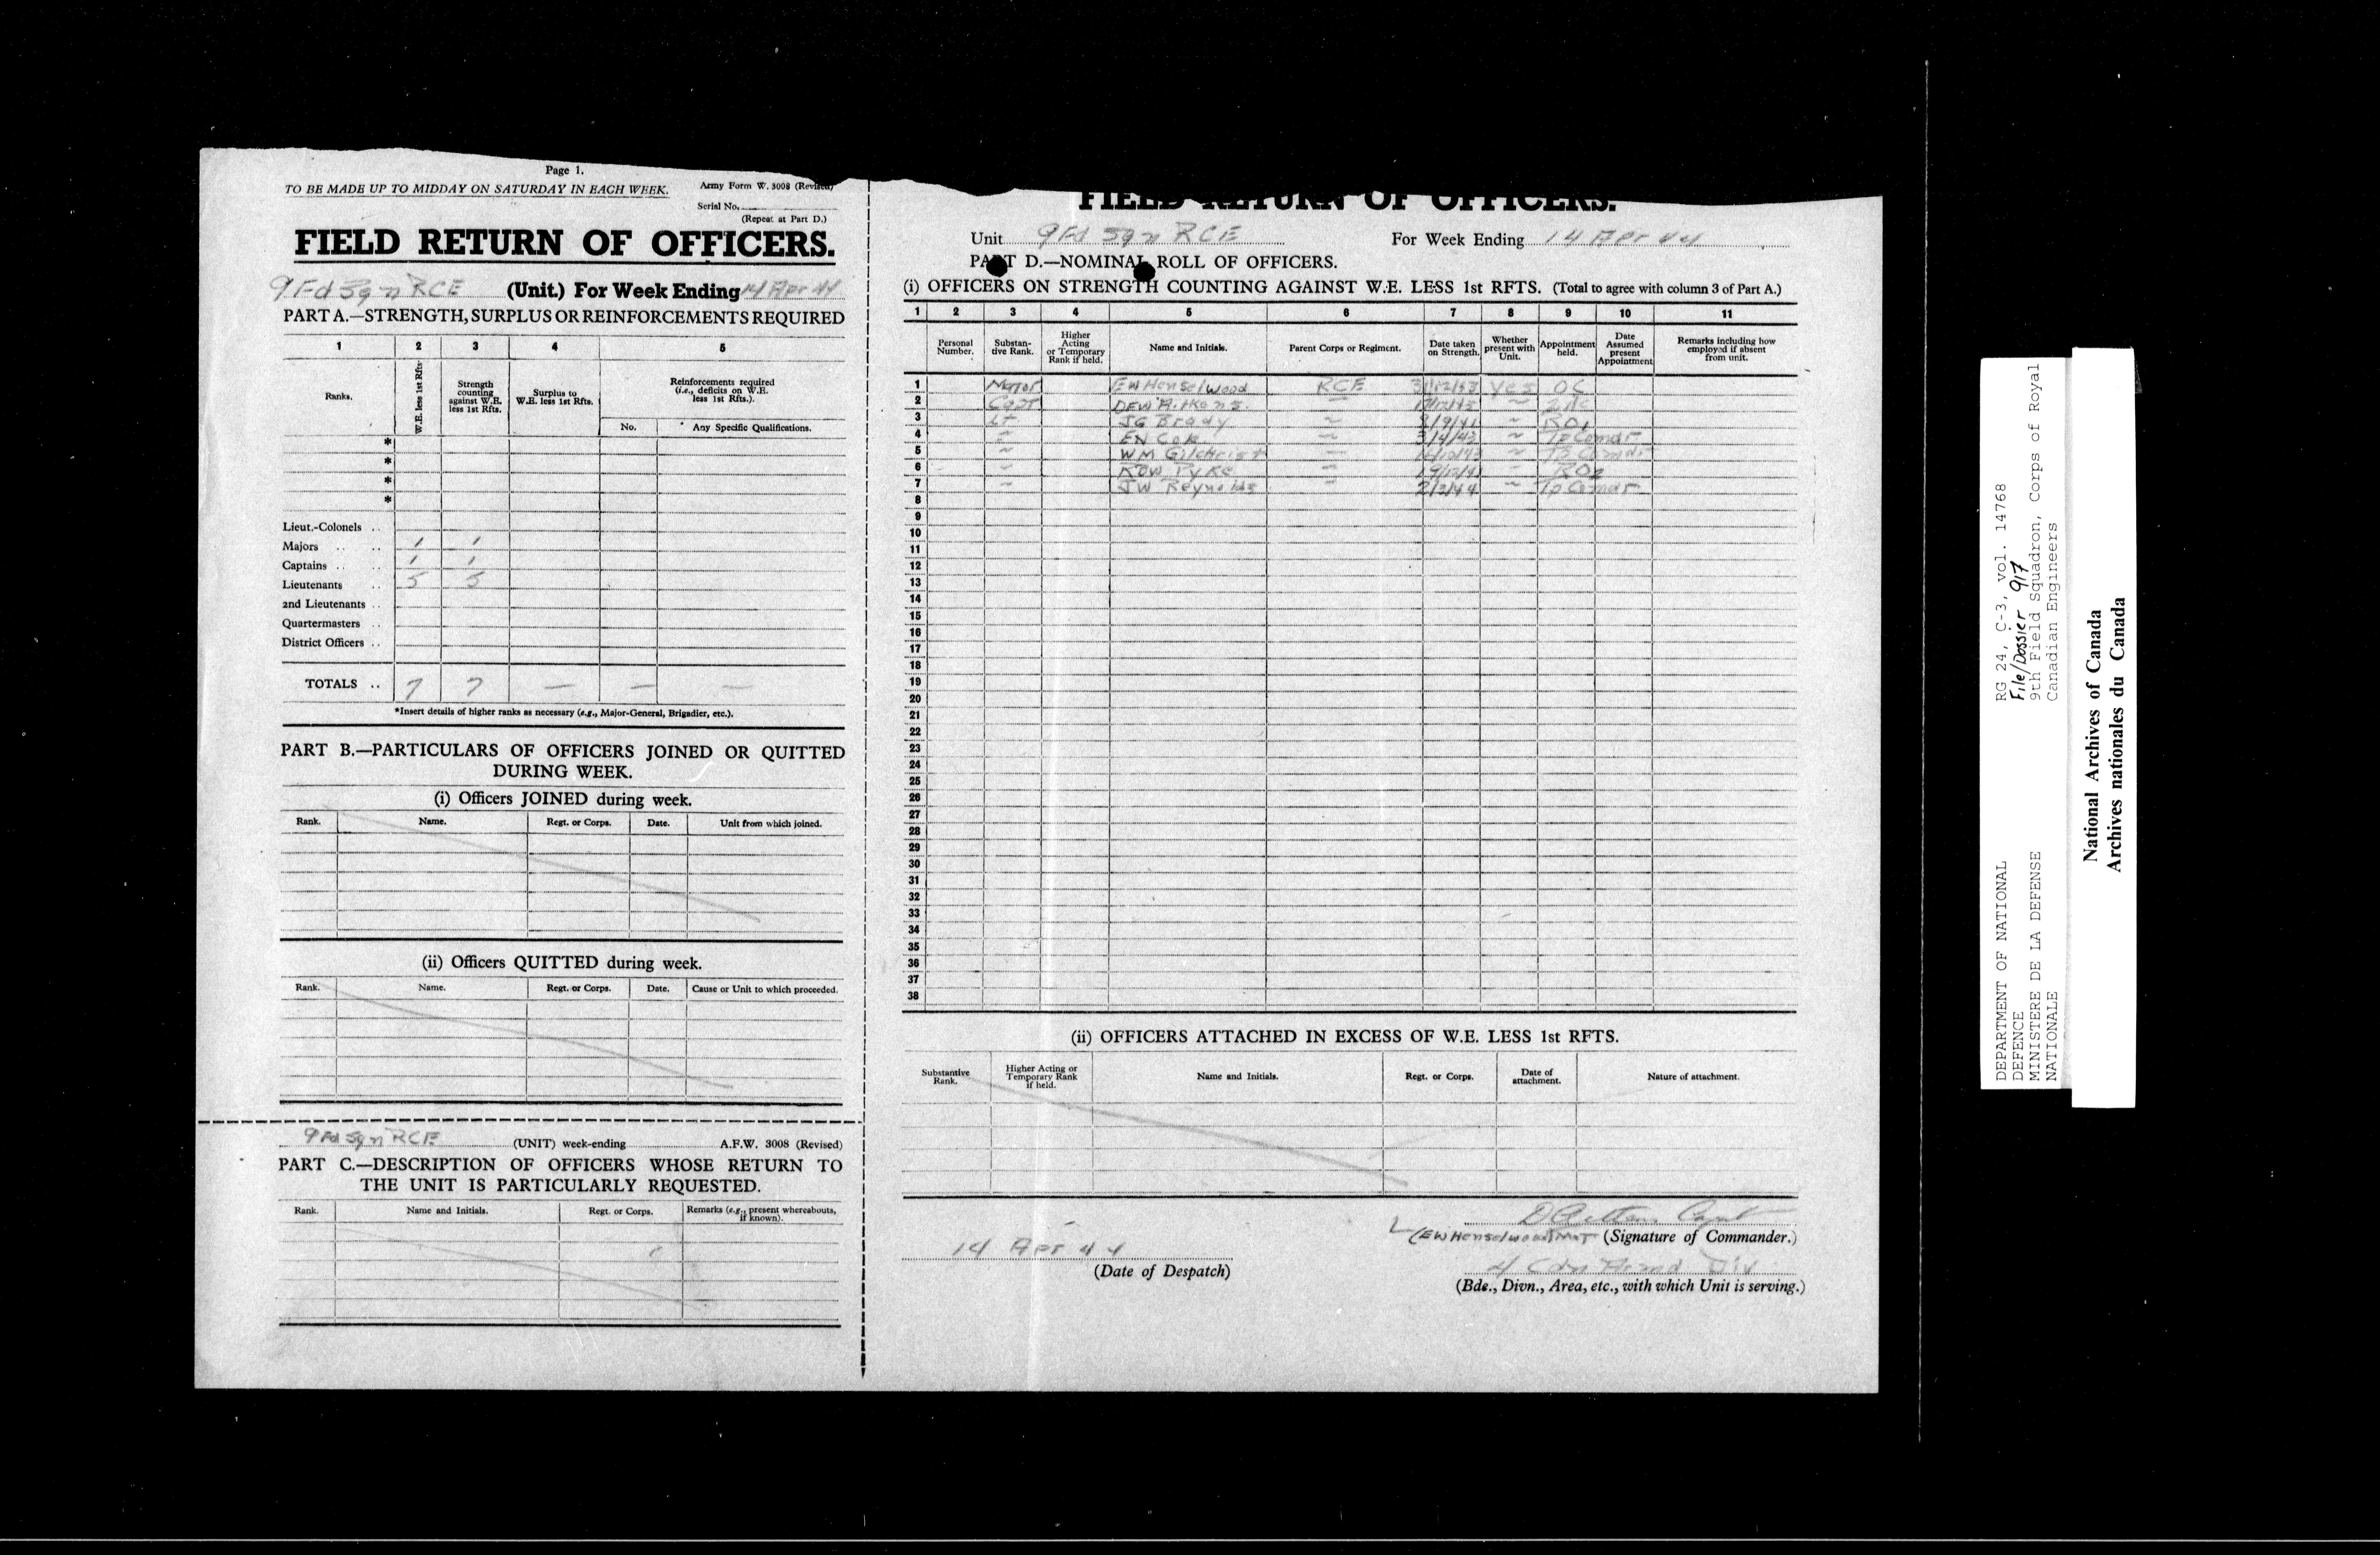 Page 1.
TO BE MADE UP TO MIDDAY ON SATURDAY IN EACH WEEK.
Army Form W. 3008 (Revised)
Serial No.
(Repeat at Part D.)
FIELD RETURN OF OFFICERS.
9 Fd Sqn RCE (Unit.) For Week Ending 14 Apr 44
PART A.—STRENGTH, SURPLUS OR REINFORCEMENTS REQUIRED
1 2 3 4 5
Ranks.
W.E. less 1st Rfts.
Strength counting against W.E. less 1st Rfts.
Surplus to W.E. less 1st Rfts.
Reinforcements required (i.e., deficits on W.E. less 1st Rfts.).
No. Any Specific Qualifications.
*
*
*
*
Lieut.-Colonels ..
Majors .. .. 1 1
Captains .. .. 1 1
Lieutenants .. 5 5
2nd Lieutenants ..
Quartermasters ..
District Officers ..
TOTALS .. 7 7 — — —
*Insert details of higher ranks as necessary (e.g., Major-General, Brigadier, etc.).
PART B.—PARTICULARS OF OFFICERS JOINED OR QUITTED
DURING WEEK.
(i) Officers JOINED during week.
Rank. Name. Regt. or Corps. Date. Unit from which joined.
(ii) Officers QUITTED during week.
Rank. Name. Regt. or Corps. Date. Cause or Unit to which proceeded.
9 Fd Sqn RCE (UNIT) week-ending A.F.W. 3008 (Revised)
PART C.—DESCRIPTION OF OFFICERS WHOSE RETURN TO
THE UNIT IS PARTICULARLY REQUESTED.
Rank. Name and Initials. Regt. or Corps. Remarks (e.g., present whereabouts, if known).
FIELD RETURN OF OFFICERS.
Unit 9 Fd Sqn RCE For Week Ending 14 Apr 44
PART D.—NOMINAL ROLL OF OFFICERS.
(i) OFFICERS ON STRENGTH COUNTING AGAINST W.E. LESS 1st RFTS. (Total to agree with column 3 of Part A.)
1 2 3 4 5 6 7 8 9 10 11
Personal Number.
Substantive Rank.
Higher Acting or Temporary Rank if held.
Name and Initials.
Parent Corps or Regiment.
Date taken on Strength.
Whether present with Unit.
Appointment held.
Date Assumed present Appointment
Remarks including how employed if absent from unit.
1 Major EW Henselwood RCE Yes OC
2 Capt DEW Aitkens — 2 i/c
3 Lt JG Brady RO1
4 EN Cok Tp Comdr
5 WM Gilchrist Tp Comdr
6 Pyke RO2
7 JW Reynolds 2/3/44 Tp Comdr
8
9
10
11
12
13
14
15
16
17
18
19
20
21
22
23
24
25
26
27
28
29
30
31
32
33
34
35
36
37
38
(ii) OFFICERS ATTACHED IN EXCESS OF W.E. LESS 1st RFTS.
Substantive Rank. Higher Acting or Temporary Rank if held. Name and Initials. Regt. or Corps. Date of attachment. Nature of attachment.
Capt
(EW Henselwood) (Signature of Commander.)
14 Apr 44
(Date of Despatch)
4 Cdn Armd Div
(Bde., Divn., Area, etc., with which Unit is serving.)
DEPARTMENT OF NATIONAL
DEFENCE
MINISTERE DE LA DEFENSE
NATIONALE
RG 24, C-3, vol. 14768
File/Dossier 917
9th Field Squadron, Corps of Royal
Canadian Engineers
National Archives of Canada
Archives nationales du Canada